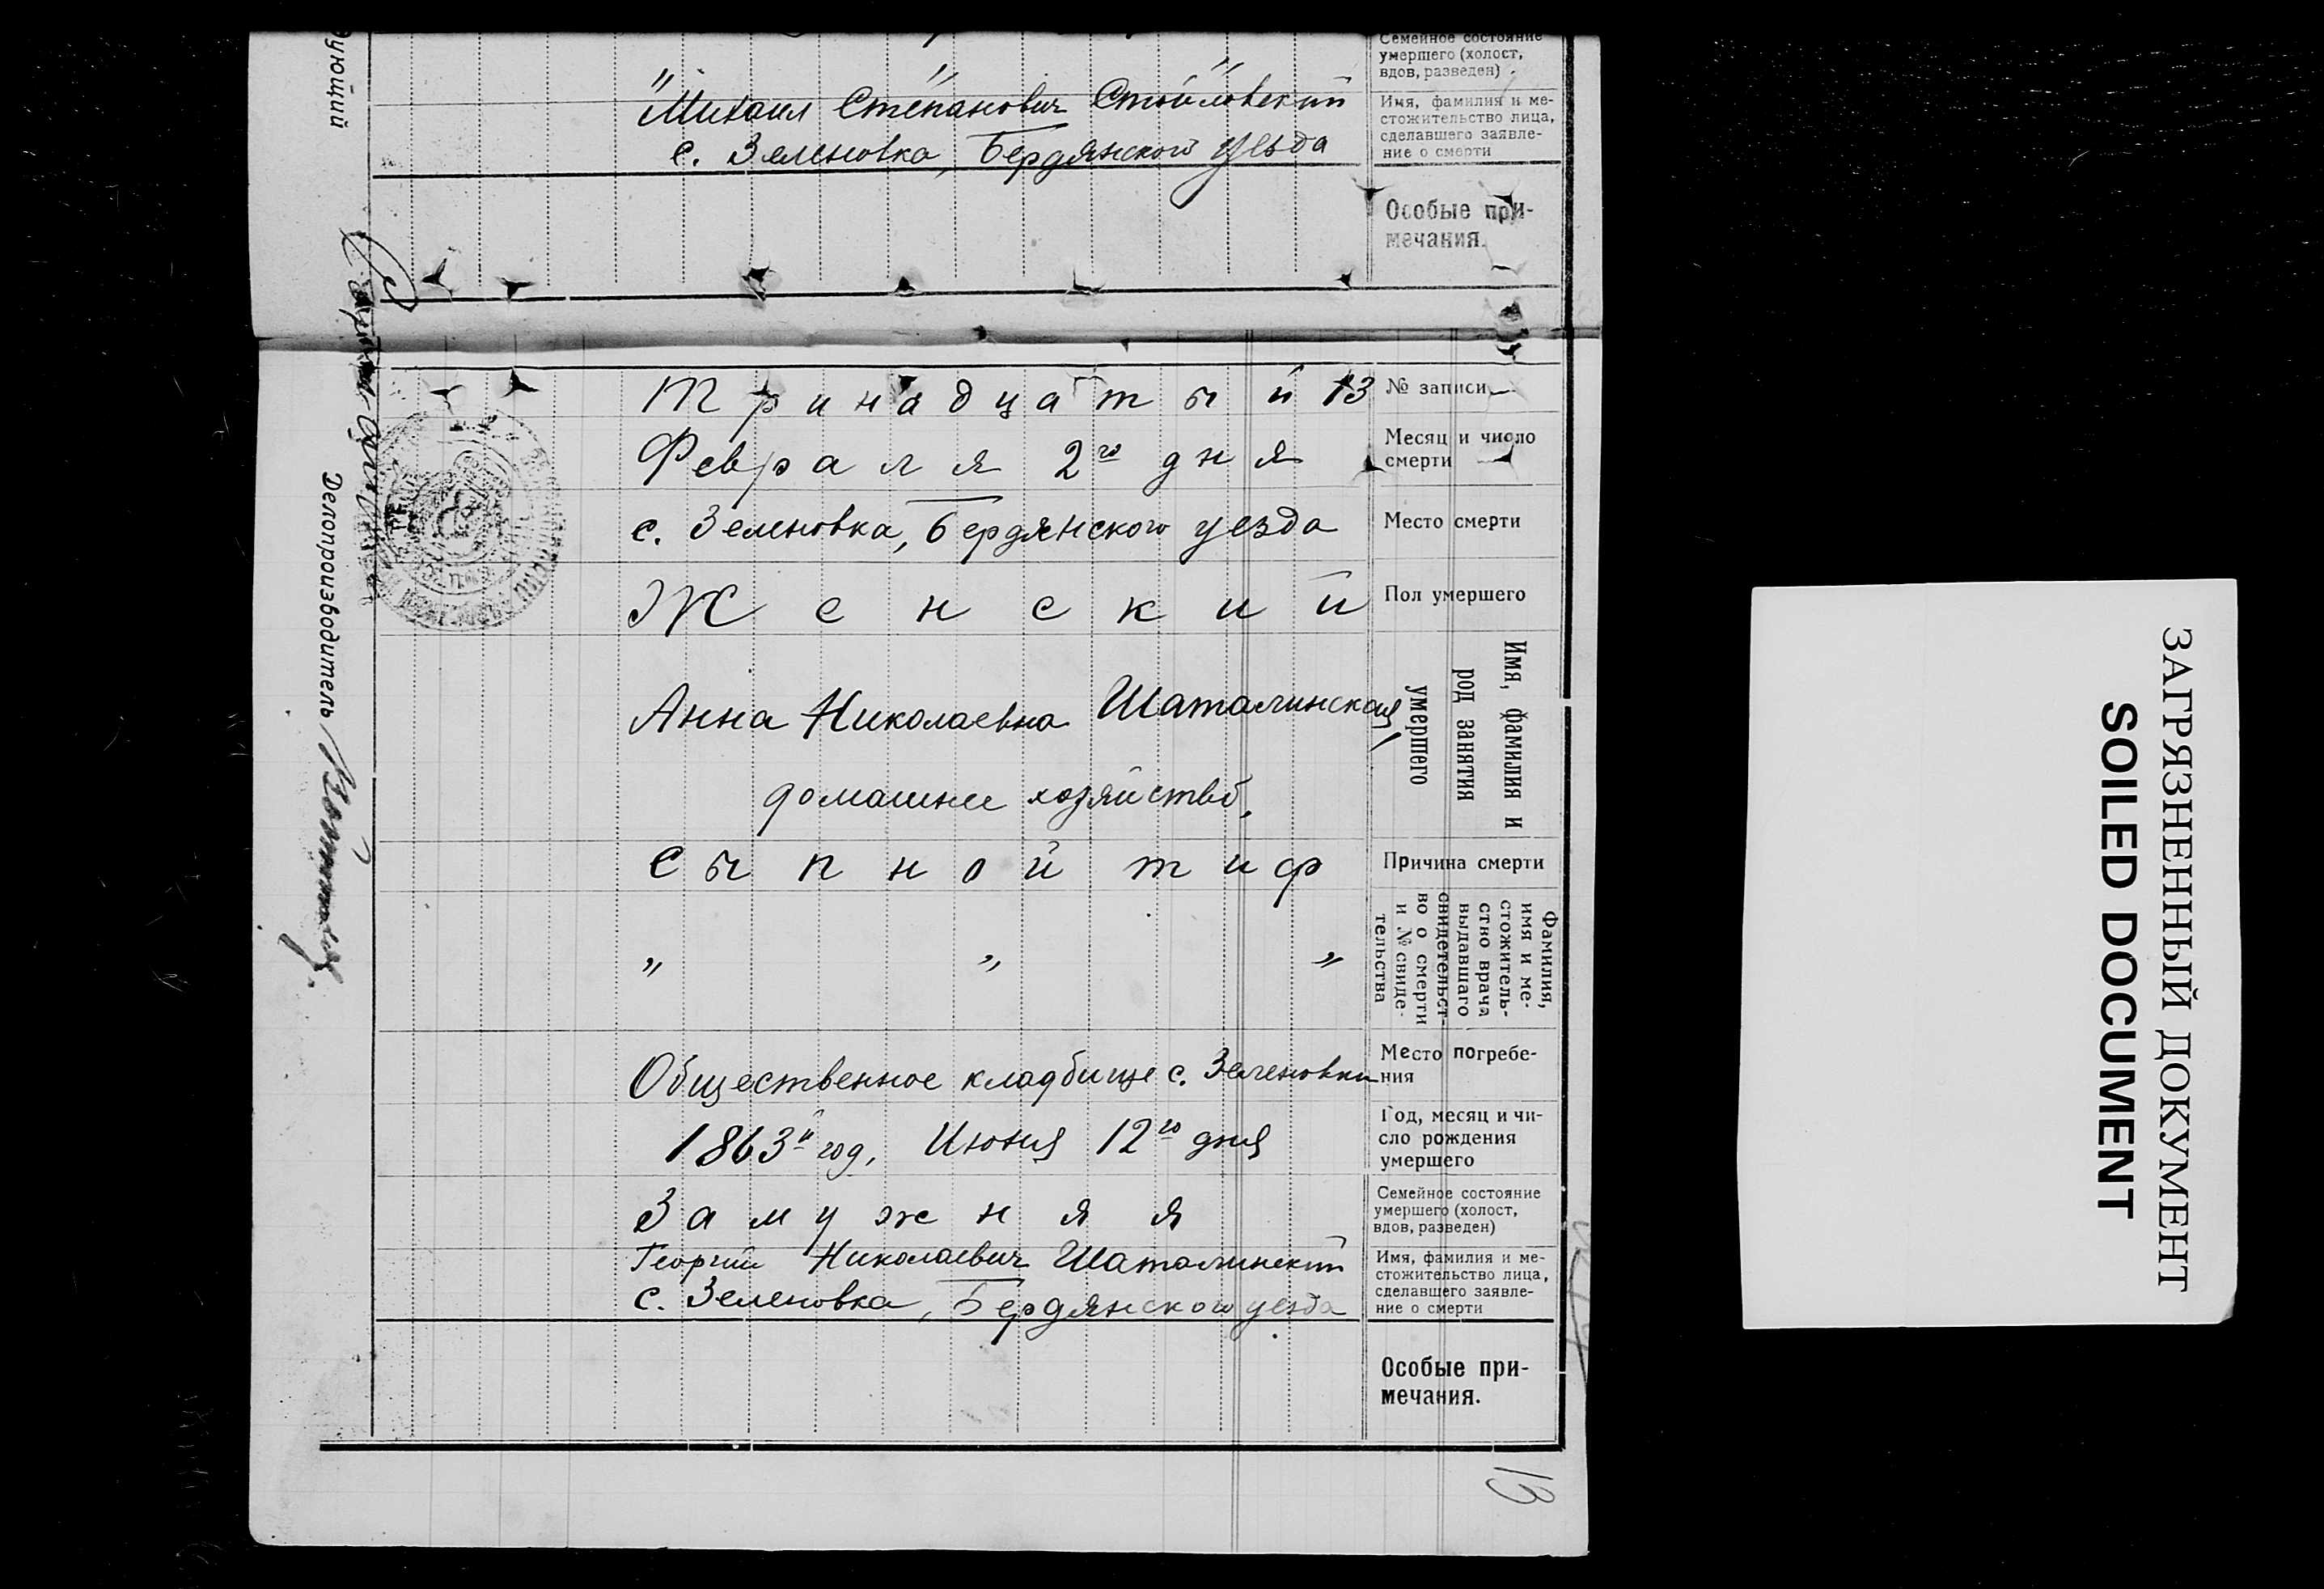 Семейное состояние
умершего (холост,
вдов, разведен)
" " "
Михаил Степанович Стойловский
с. Зеленовка, Бердянского уезда
Имя, фамилия и ме-
стожительство лица,
сделавшего заявле-
ние о смерти
Особые при-
мечания.
Тринадцатый 13
№ записи
Февраля 2го дня
Месяц и число
смерти
с. Зеленовка, Бердянского уезда
Место смерти
Женский
Пол умершего
Анна Николаевна Шаталинская,
домашнее хозяйство.
Имя, фамилия и
род занятия
умершего
Сыпной тиф
Причина смерти
" " "
Фамилия,
имя и ме-
стожитель-
ство врача
выдавшаго
свидетельст-
во о смерти
и № свиде-
тельства
Общественное кладбище с. Зеленовки
Место погребе-
ния
1863й год, Июня 12го дня
Год, месяц и чи-
сло рождения
умершего
Замужняя
Семейное состояние
умершего (холост,
вдов, разведен)
Георгий Николаевич Шаталинский
с. Зеленовка, Бердянского уезда
Имя, фамилия и ме-
стожительство лица,
сделавшего заявле-
ние о смерти
Особые при-
мечания.
Делопроизводитель
13
ЗАГРЯЗНЕННЫЙ ДОКУМЕНТ
SOILED DOCUMENT